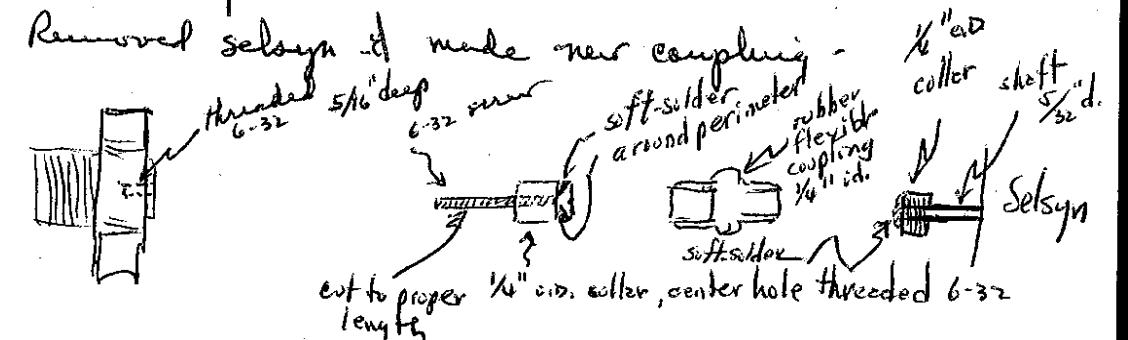 Removed selsyn & made new coupling -
threaded 5/16" deep
6-32
6-32 screw
soft-solder
around perimeter
rubber
flexible
coupling
1/4" id.
1/4" OD
collar
shaft
5/32" d.
Selsyn
soft-solder
cut to proper
length
1/4" o.d. collar, center hole threaded 6-32